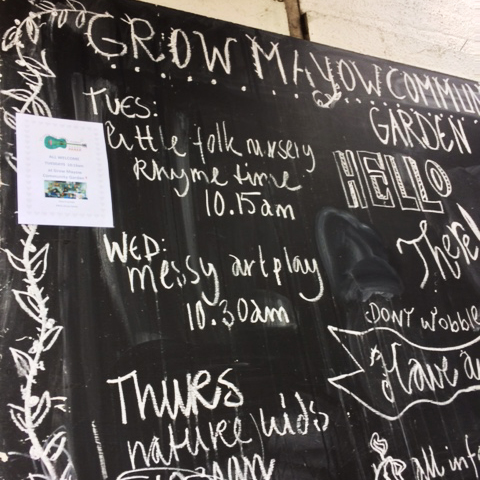 GROW MAYOW COMMUN
GARDEN
TUES:
little folk nursery
Rhyme time
10.15am
WED:
messy art play
10.30am
THURS
nature kids
HELLO
There!
DON'T wobble
Have a
all inf